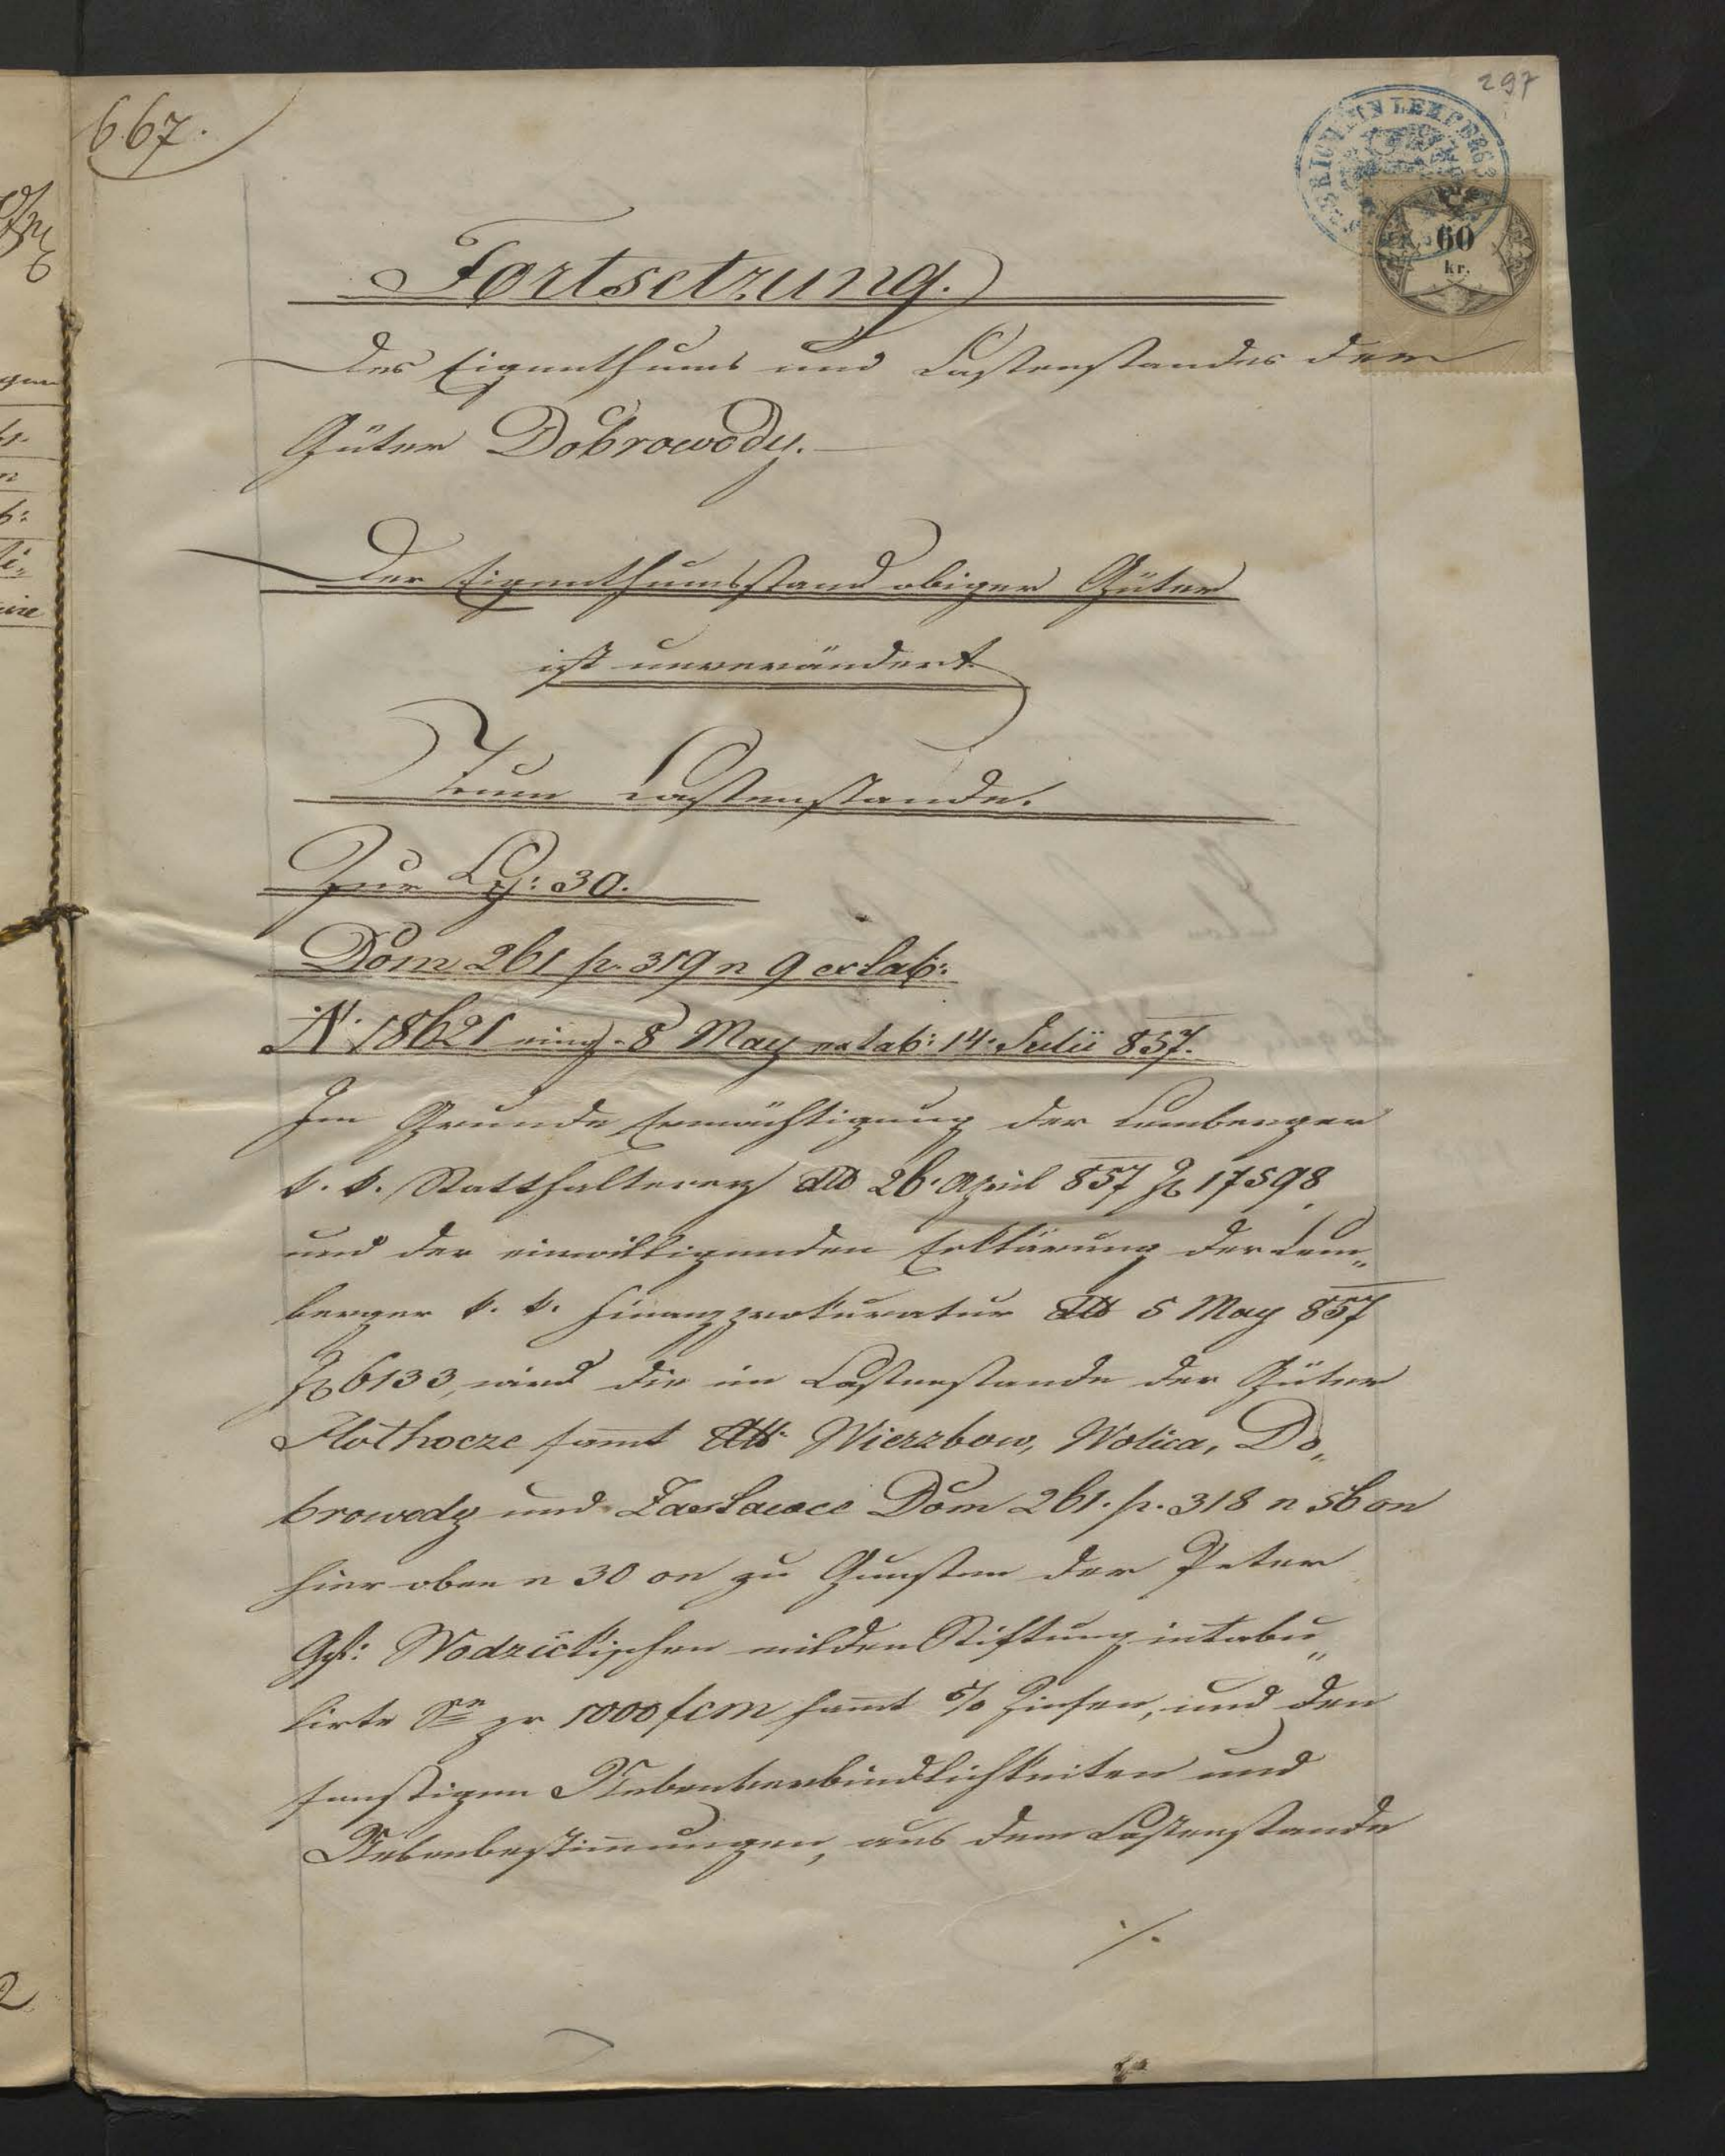 297
667.
60
kr.
Fortsetzung.
Des Eigenthums und Lastenstandes der
Güter Dobrowody.
Der Eigenthumsstand obiger Güter
ist unverändert.
Zum Lastenstande.
Zur Lp: 30.
Dom 261 p. 319 n 9 extab:
N. 18621 eing. 8 May extab: 14. Julii 857.
Im Grunde Ermächtigung der Lemberger
k. k. Statthalterey dto 26. April 857 Z 17598
und der einwilligenden Erklärung der Lem„
berger k. k. Finanzprokuratur dto 5 May 857
Z 6133, wird die im Lastenstande der Güter
Płothocze samt Att: Wierzbow, Wolica, Do„
browody und Zasławce Dom 261. p. 318 n 56 on
hier oben n 30 on zu Gunsten der Peter
Gf: Wodzickischen milden Stiftung intabu„
lirte Se pr 1000 fcm samt 5% Zinsen, und den
sonstigen Nebenverbindlichkeiten und
Nebenbestimmungen, aus dem Lastenstande
./.